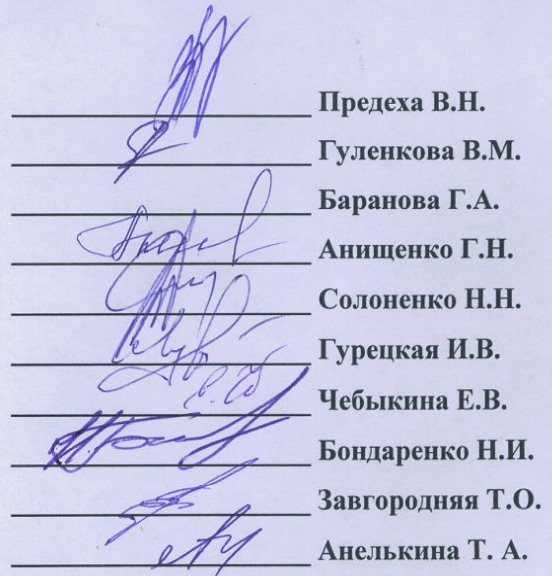 Предеха В.Н.
Гуленкова В.М.
Баранова Г.А.
Анищенко Г.Н.
Солоненко Н.Н.
Гурецкая И.В.
Чебыкина Е.В.
Бондаренко Н.И.
Завгородняя Т.О.
Анелькина Т. А.